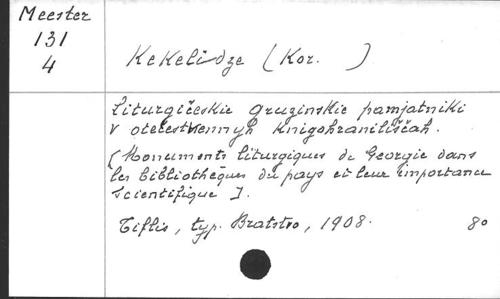 Meester
131
4
Kekelidze (Kor. )
Liturgičeskie gruzinskie pamjatniki
v otečestvennyh knigohraniliščah.
[Monuments liturgiques de Georgie dans
les bibliothèques du pays et leur importance
scientifique].
Tiflis, typ. Bratstvo, 1908. 8o